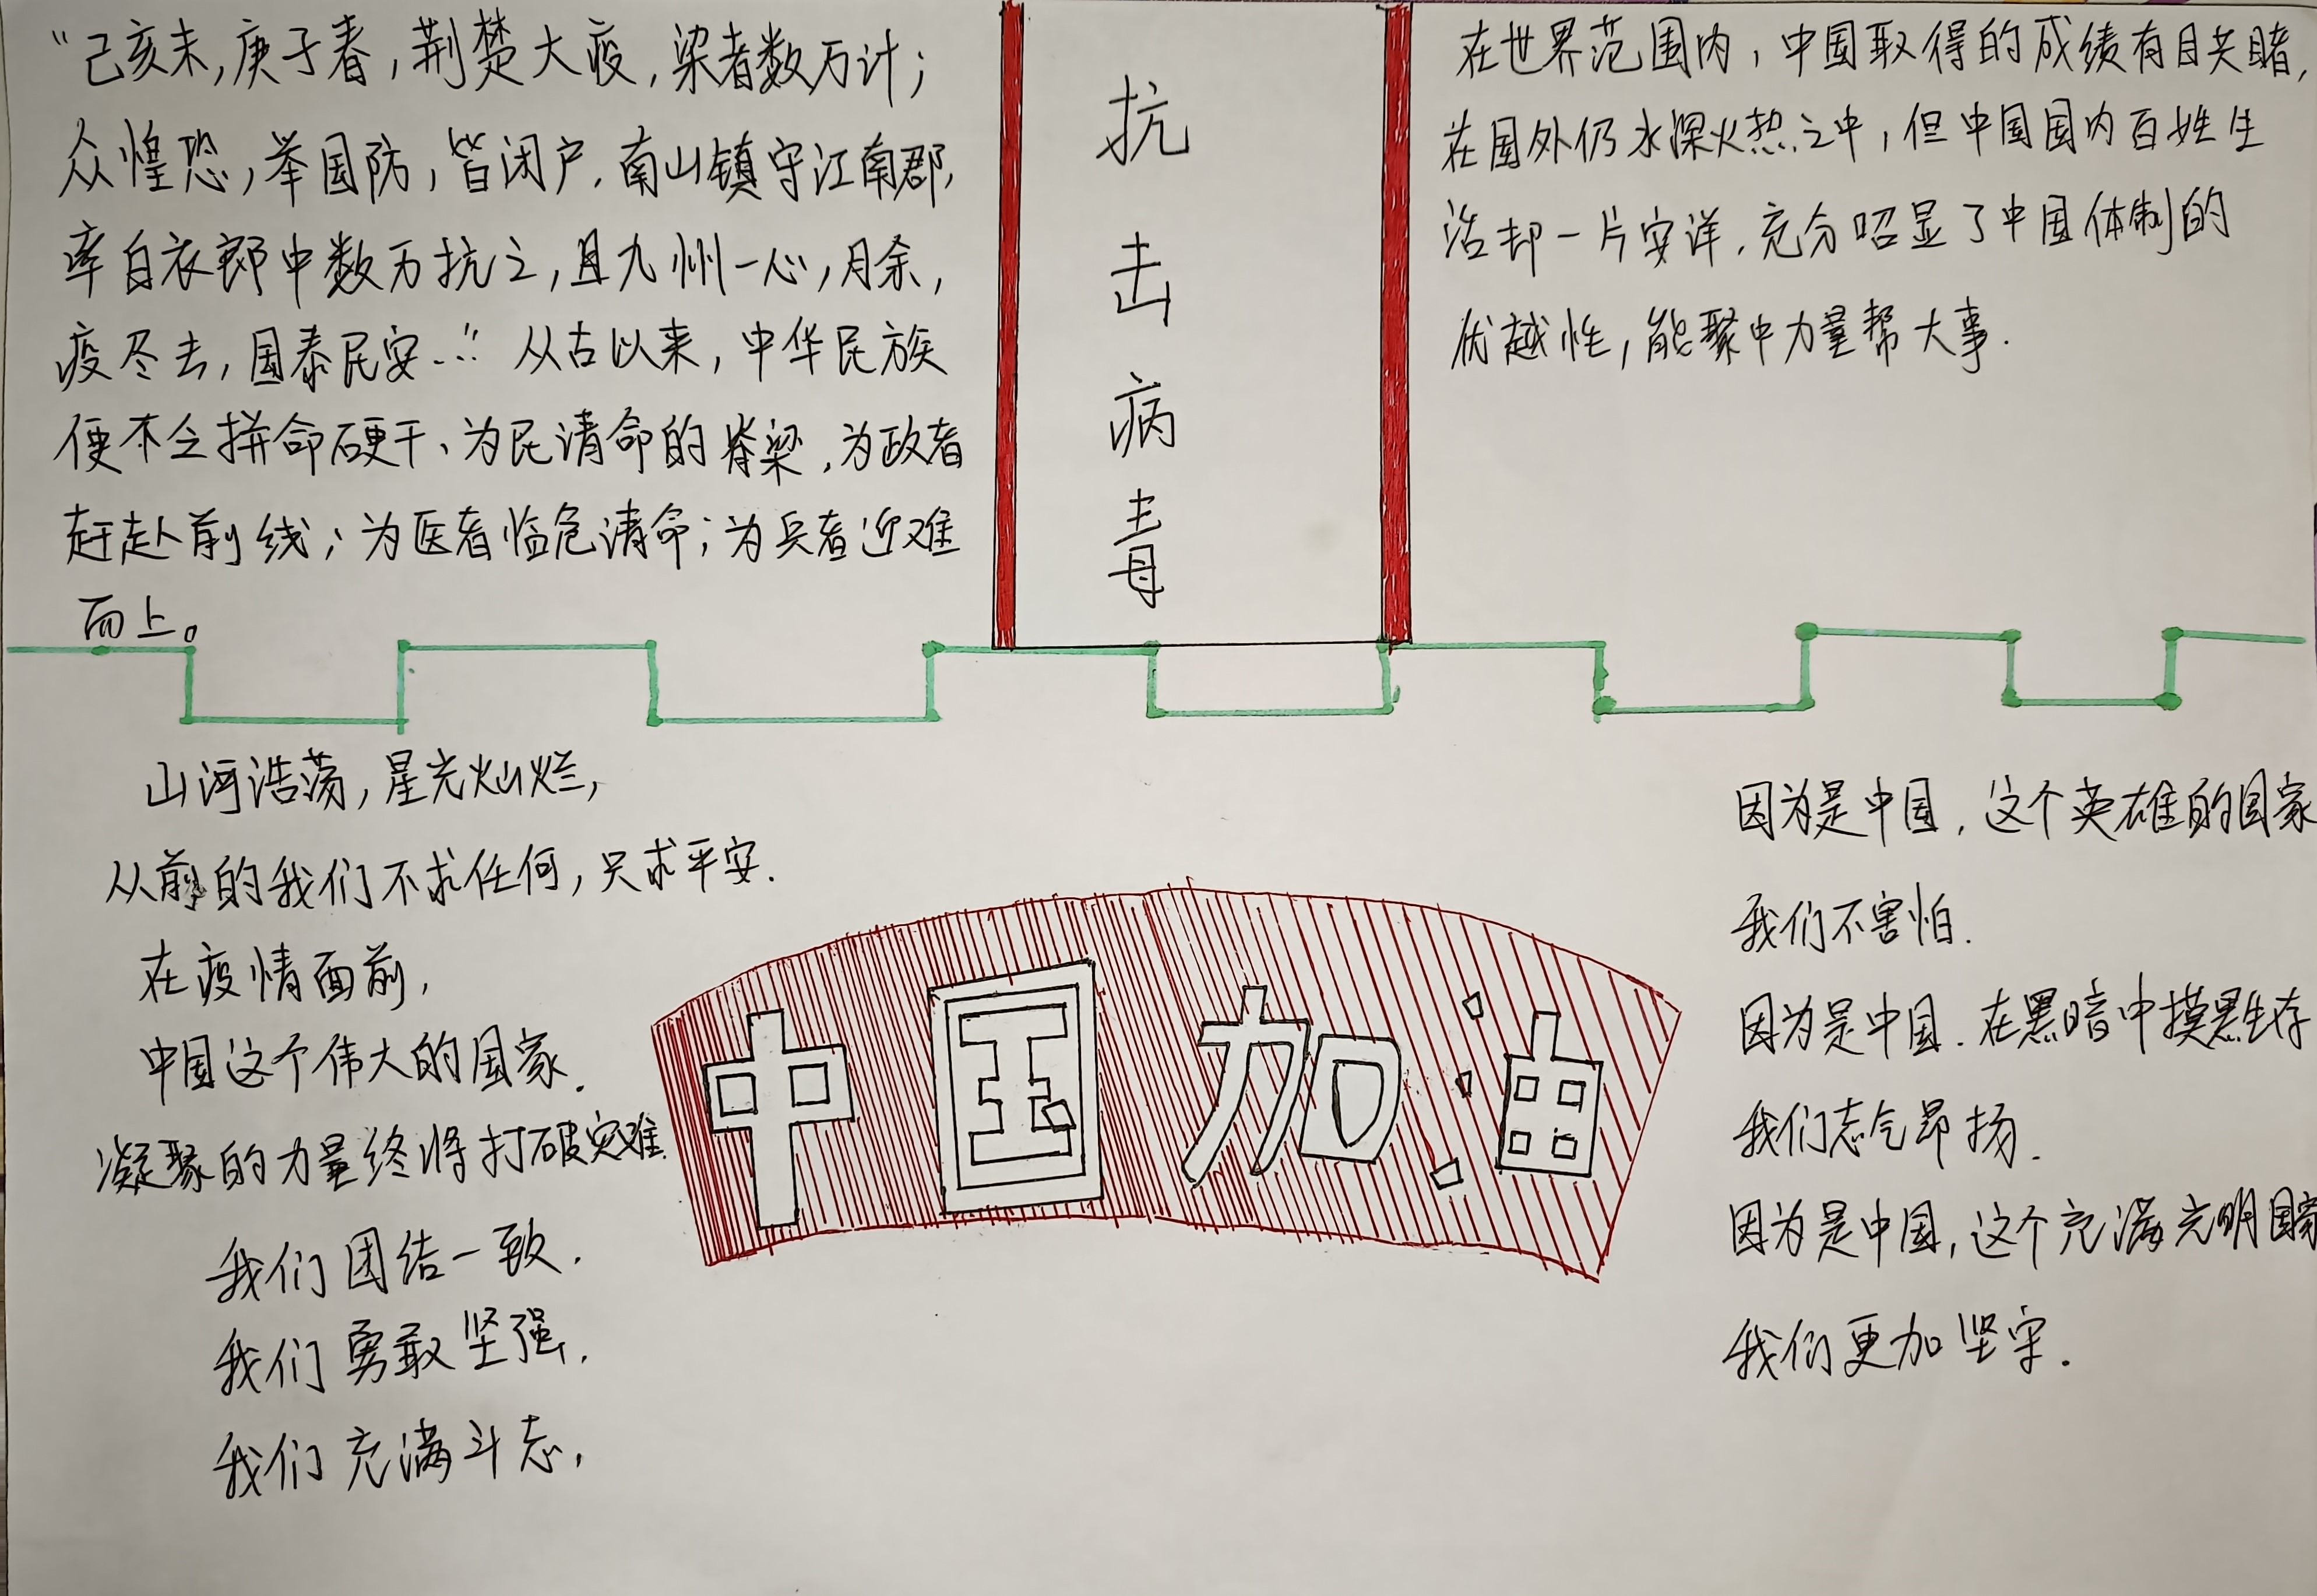 “己亥末,庚子春,荆楚大疫,染者数万计;
众惶恐,举国防,皆闭户.南山镇守江南郡,
率白衣郎中数万抗之,且九州一心,月余,
疫尽去,国泰民安...”从古以来,中华民族
便不乏拼命硬干、为民请命的脊梁,为政者
赶赴前线;为医者临危请命;为兵者迎难
而上。
抗
击
病
毒
在世界范围内,中国取得的成绩有目共睹,
在国外仍水深火热之中,但中国国内百姓生
活却一片安详.充分昭显了中国体制的
优越性,能聚中力量帮大事.
山河浩荡,星光灿烂,
从前的我们不求任何,只求平安.
在疫情面前,
中国这个伟大的国家.
凝聚的力量终将打破灾难.
我们团结一致.
我们勇敢坚强.
我们充满斗志,
中国加油
因为是中国,这个英雄的国家
我们不害怕.
因为是中国.在黑暗中摸黑生存
我们志气昂扬.
因为是中国,这个充满光明国家
我们更加坚守.